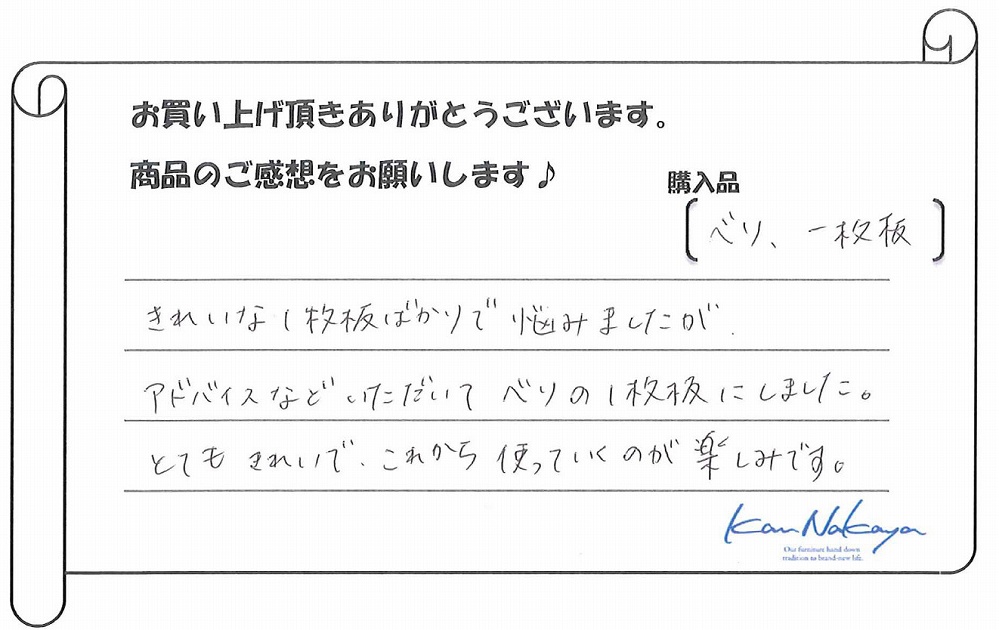 お買い上げ頂きありがとうございます。
商品のご感想をお願いします♪
購入品
ベリ、一枚板
きれいな1枚板ばかりで悩みましたが、
アドバイスなどいただいてベリの1枚板にしました。
とてもきれいで、これから使っていくのが楽しみです。
KanNakaya
Our furniture hand down
tradition to brand-new life.